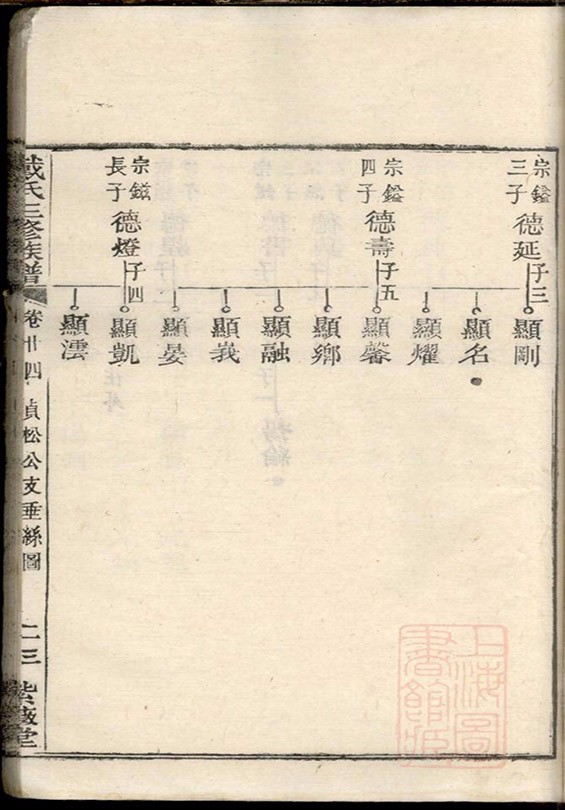 宗鎰
三子
德延
子三
顯剛
顯名
顯燿
宗鎰
四子
德壽
子五
顯馨
顯鄉
顯融
顯義
顯晏
宗鎡
長子
德燈
子四
顯凱
顯澐
戴氏三修族譜
卷廿四
貞松公支垂絲圖
二三
紫薇堂
上海圖
書館藏